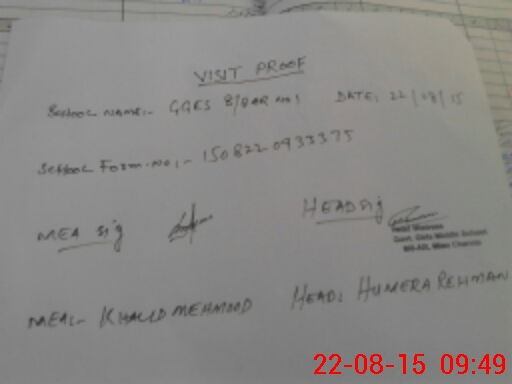 VISIT PROOF
SCHOOL NAME:- GGES 8/ DATE: 22/08/15
SCHOOL FORM.NO:- 150822-0933375
MEA Sig HEAD Sig
Head Mistress
Govt. Girls Middle School
Mian Channu
MEA:- KHALID MEHMOOD HEAD: HUMERA REHMAN
22-08-15 09:49